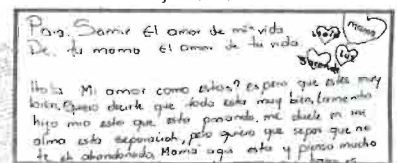 Para: Samir El amor de mi vida
De: tu mama El amor de tu vida.
mama
Luz
Hola Mi amor como estas? espero que estes muy
bien, Quiero decirte que todo esta muy bien, Lamento
hijo mio esto que esta pasando, me duele en mi
alma esta separaicón, pero quiero que sepas que no
te eh abandonado, Mamá aqui esta y pienso mucho